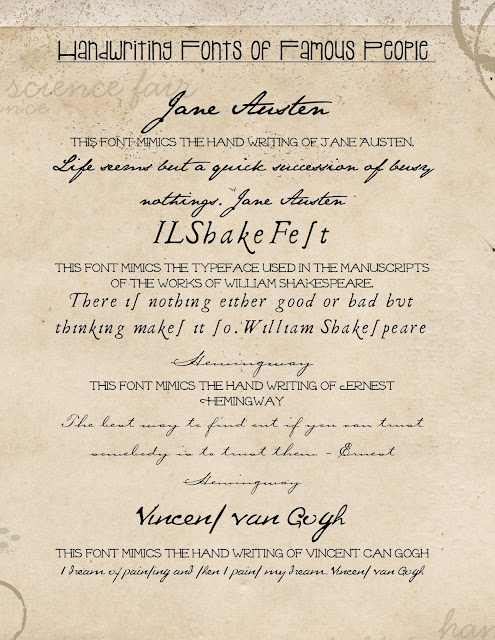 Handwriting Fonts of Famous People
science fair
ence
Jane Austen
THIS FONT MIMICS THE HAND WRITING OF JANE AUSTEN.
Life seems but a quick succession of busy
nothings. Jane Austen
ILShakeFeſt
THIS FONT MIMICS THE TYPEFACE USED IN THE MANUSCRIPTS
OF THE WORKS OF WILLIAM SHAKESPEARE.
There iſ nothing either good or bad bvt
thinking makeſ it ſo.William Shakeſpeare
Hemingway
THIS FONT MIMICS THE HAND WRITING OF ERNEST
HEMINGWAY
The best way to find out if you can trust
somebody is to trust them. - Ernest
Hemingway
Vincent van Gogh
THIS FONT MIMICS THE HAND WRITING OF VINCENT CAN GOGH
I dream of painting and then I paint my dream. Vincent van Gogh
han